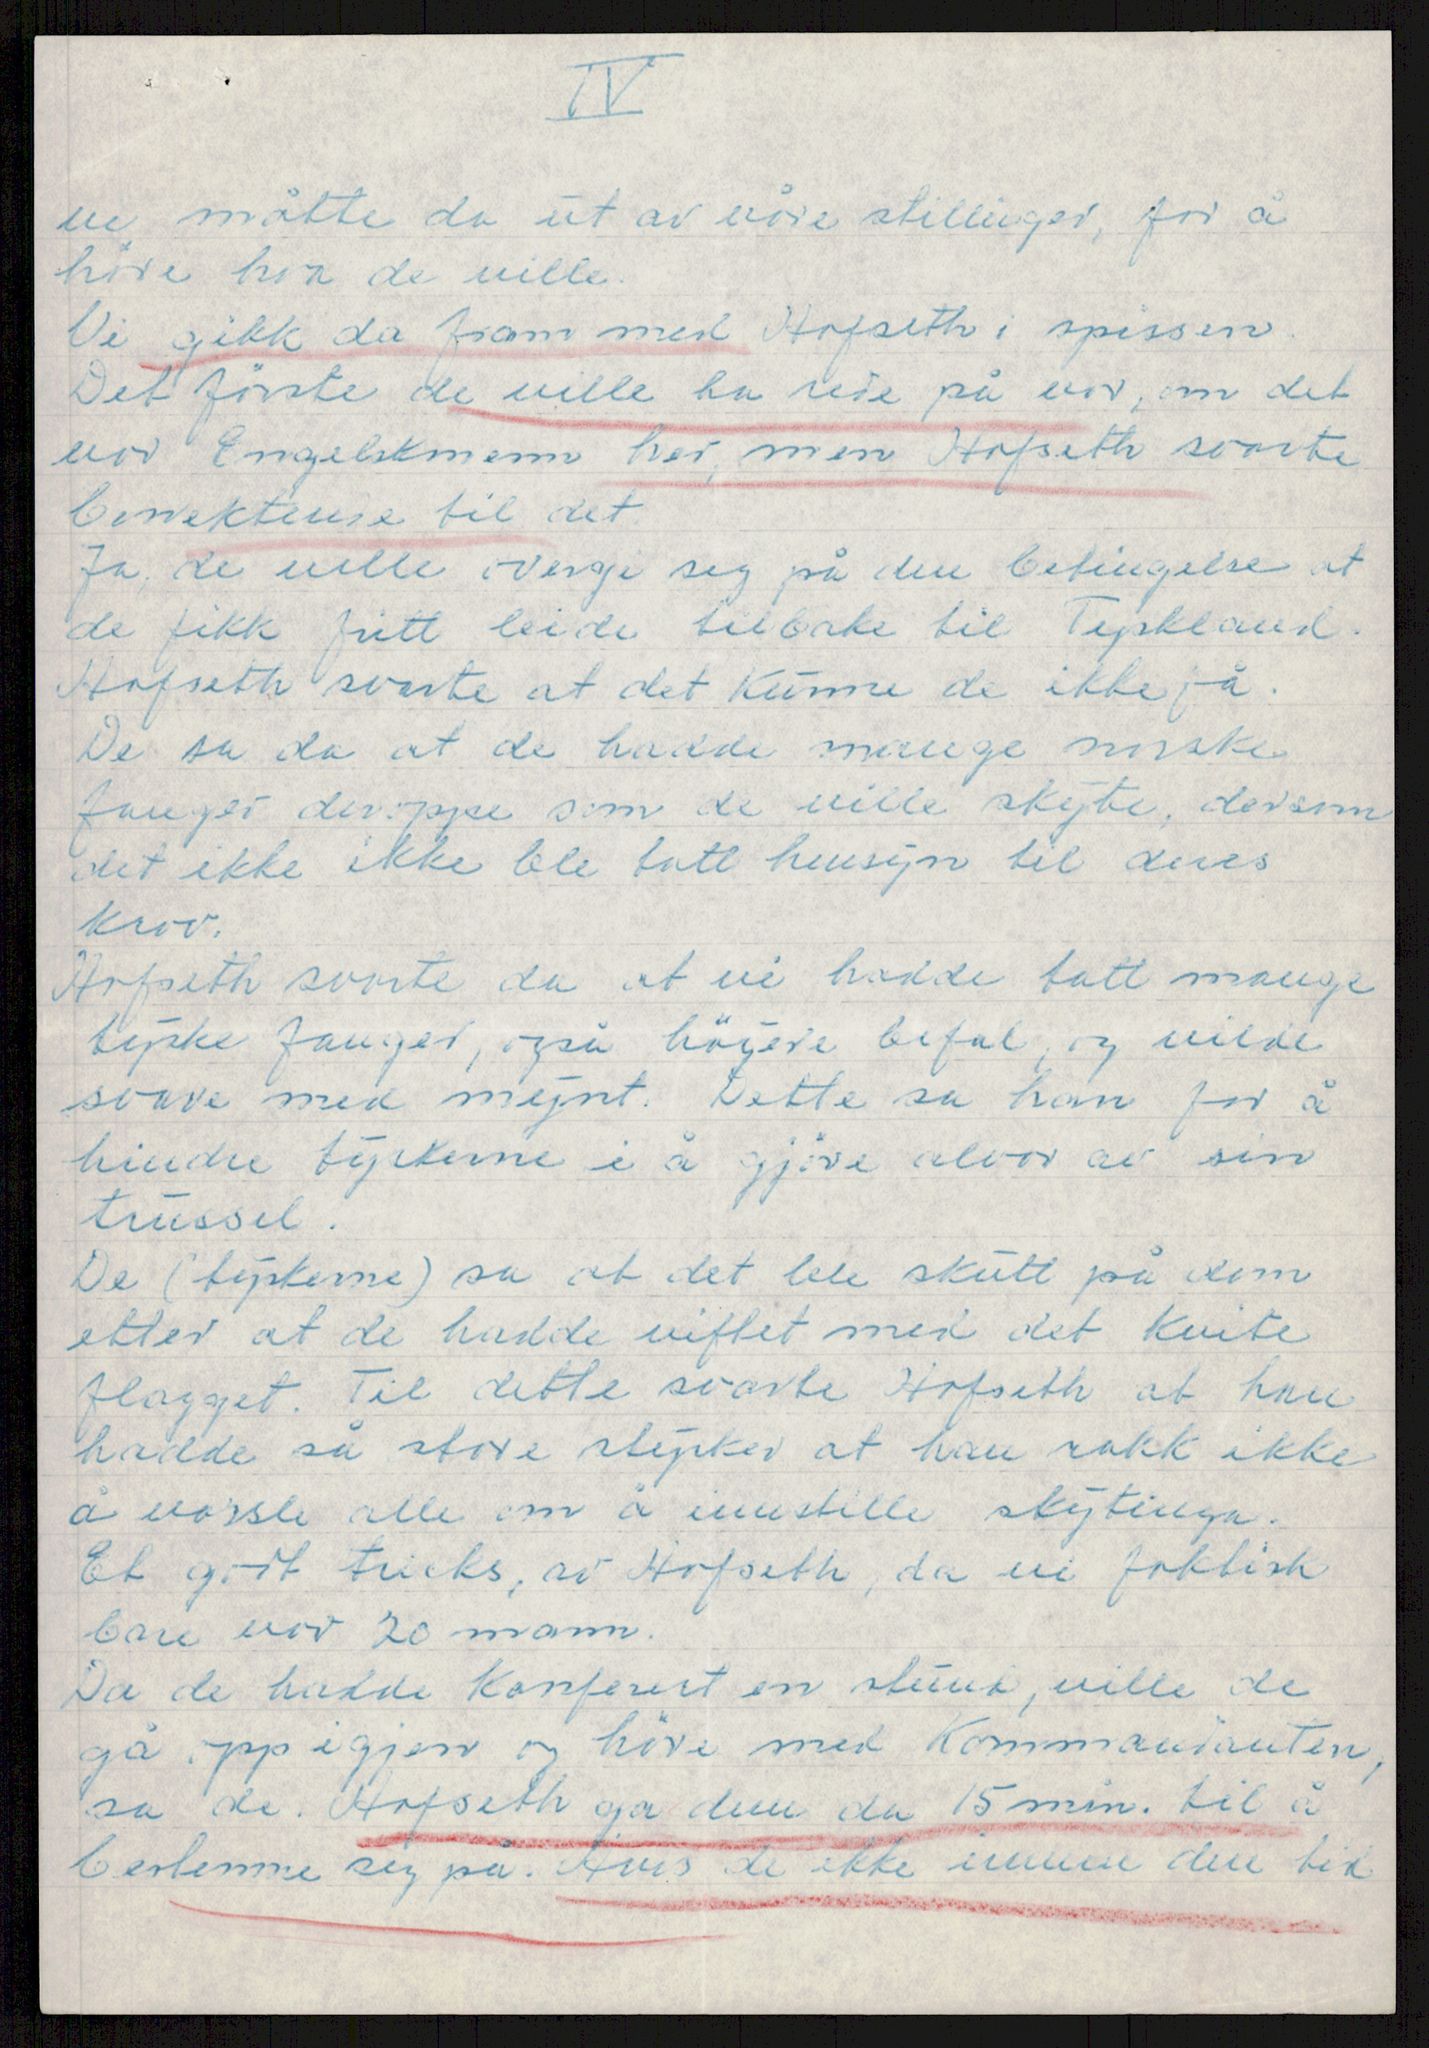 IV
ve måtte da ut av våre stillinger, for å
höre hva de ville.
Vi gikk da fram med Hofseth i spissen.
Det förste de ville ha reie på var, om det
var Engelskmenn her, men Hofseth svarte
benektende til det.
Ja, de ville overgi seg på den betingelse at
de fikk fritt leide tilbake til Tyskland.
Hofseth svarte at det kunne de ikke få.
De sa da at de hadde mange norske
fanger deroppe som de ville skyte, dersom
det ikke ikke ble tatt hensyn til deres
krav.
Hofseth svarte da at vi hadde tatt mange
tyske fanger, også höyere befal, og vilde
svare med mynt. Dette sa han for å
hindre tyskerne i å gjöre alvor av sin
trussel.
De (tyskerne) sa at det ble skutt på dom
etter at de hadde viftet med det kvite
flagget. Til dette svarte Hofseth at han
hadde så store styrker at han rakk ikke
å varsle alle om å innstille skytinga.
Et godt tricks, av Hofseth, da vi faktisk
bare var 20 mann.
Da de hadde konferert en stund, ville de
gå opp igjen og höre med Kommandanten,
sa de. Hofseth ga dem da 15 min. til å
bestemme seg på. Hvis de ikke innen den tid